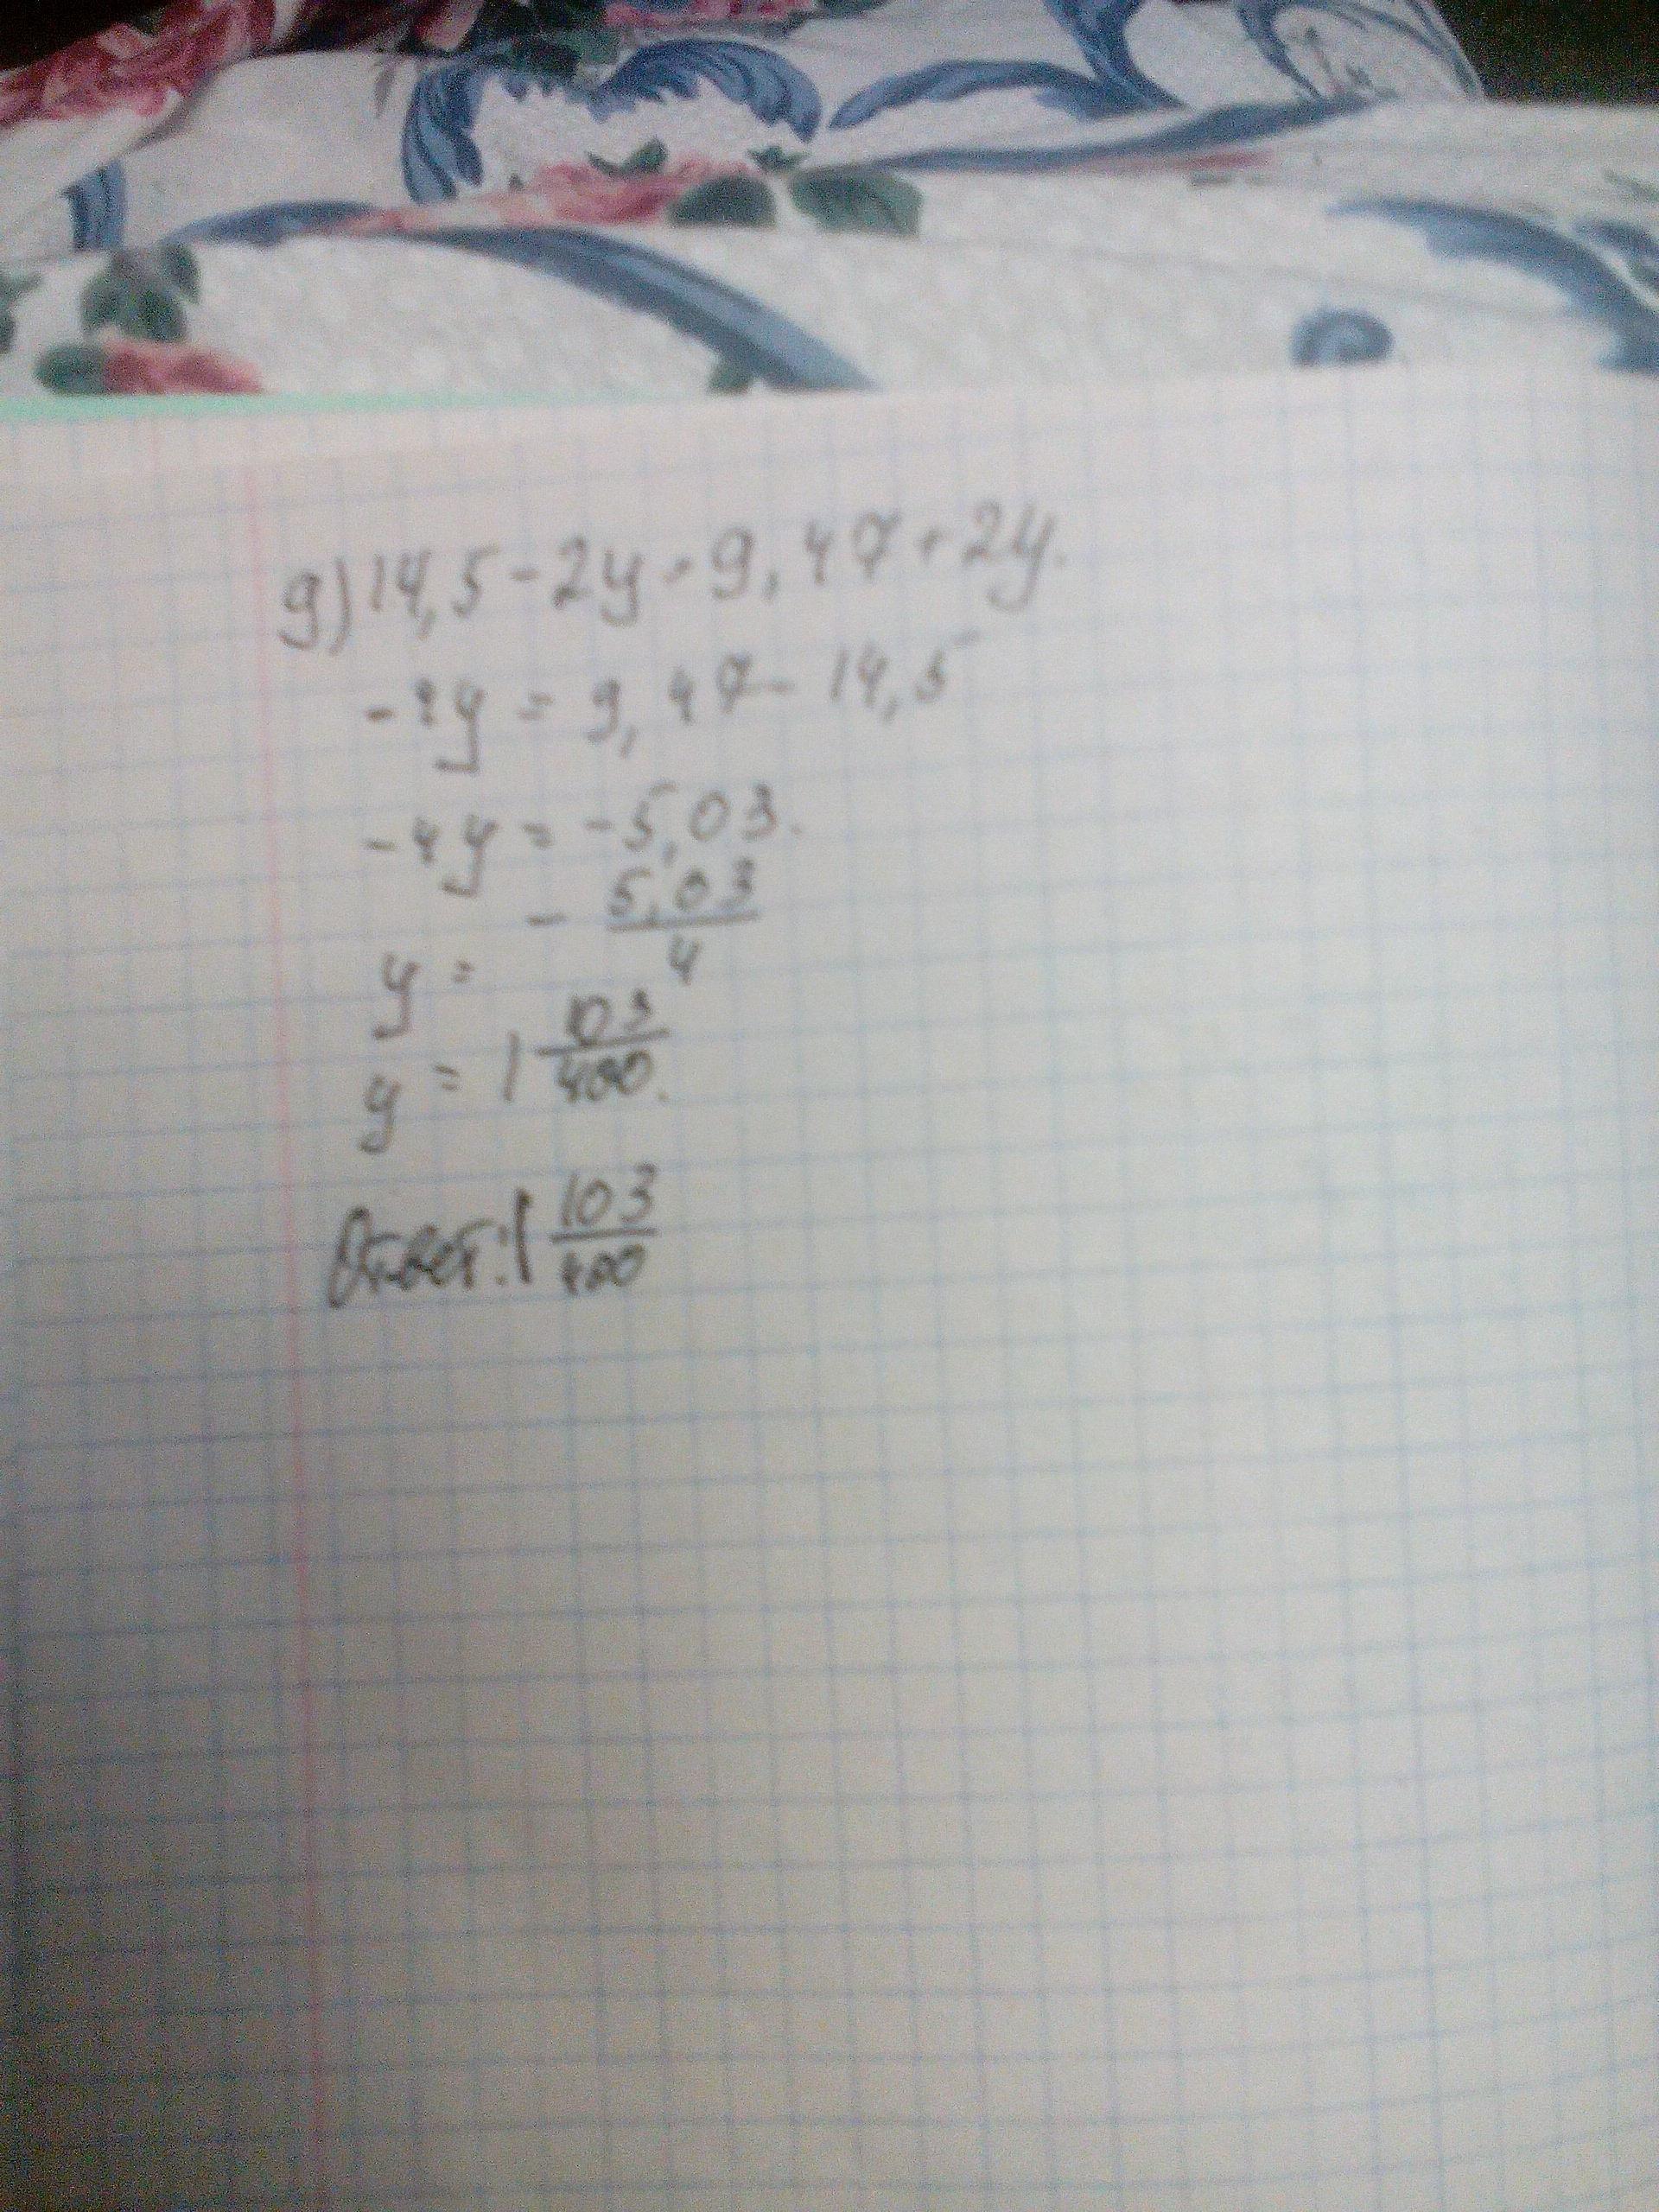 g) 14,5 - 2y = 9,47 + 2y.
-4y = 9,47 - 14,5
-4y = -5,03.
y = - 5,03/4
y = 1 103/400.
Ответ: 1 103/400